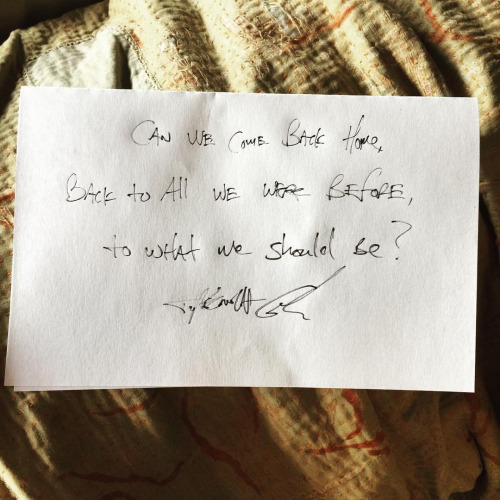 CAN WE COME BACK HOME,
BACK to All WE WERE BEFORE,
to WHAT we should BE?